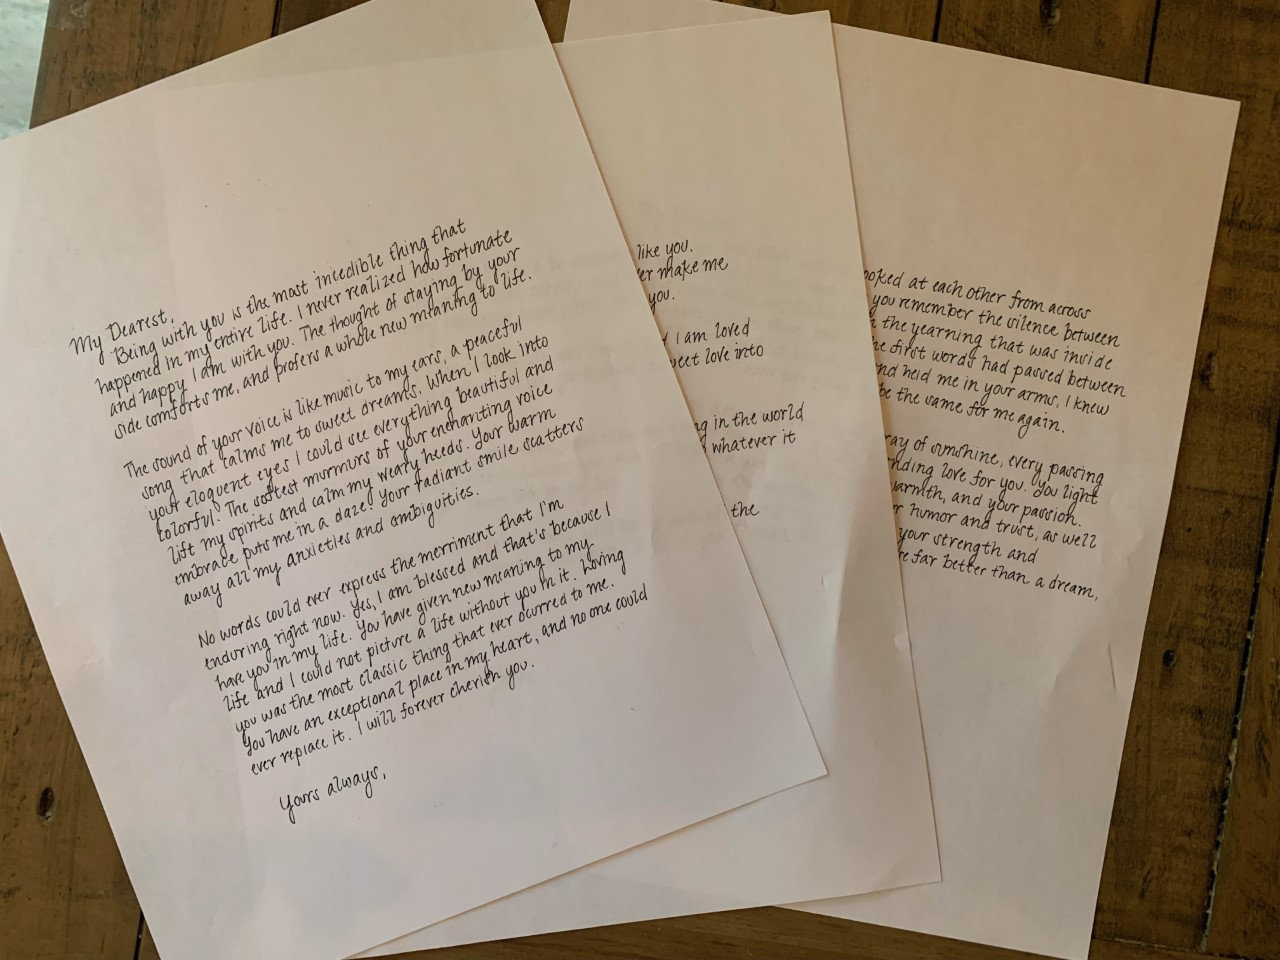 My Dearest,
Being with you is the most incedible thing that
happened in my entire life. I never realized how fortunate
and happy I am with you. The thought of staying by your
side comforts me, and profers a whole new meaning to life.
The sound of your voice is like music to my ears, a peaceful
song that calms me to sweet dreams. When I look into
your eloquent eyes I could see everything beautiful and
colorful. The softest murmurs of your enchanting voice
lift my spirits and calm my weary heeds. Your warm
embrace puts me in a daze! Your radiant smile scatters
away all my anxieties and ambiguities.
No words could ever express the merriment that I'm
enduring right now. Yes, I am blessed and that's because I
have you in my life. You have given new meaning to my
life and I could not picture a life without you in it. Loving
you was the most classic thing that ever ocurred to me.
You have an exceptional place in my heart, and no one could
ever replace it. I will forever cherish you.
Yours always,
like you.
make me
you.
I am loved
love into
in the world
whatever it
the
at each other from across
you remember the silence between
the yearning that was inside
first words had passed between
held me in your arms, I knew
be the same for me again.
ray of sunshine, every passing
love for you. You light
warmth, and your passion.
humor and trust, as well
your strength and
far better than a dream,